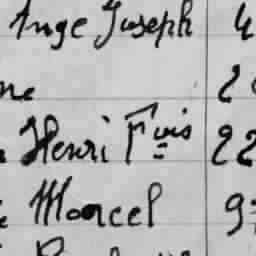 Ange Joseph 4
ne 2
Henri Fois 22
Marcel 9